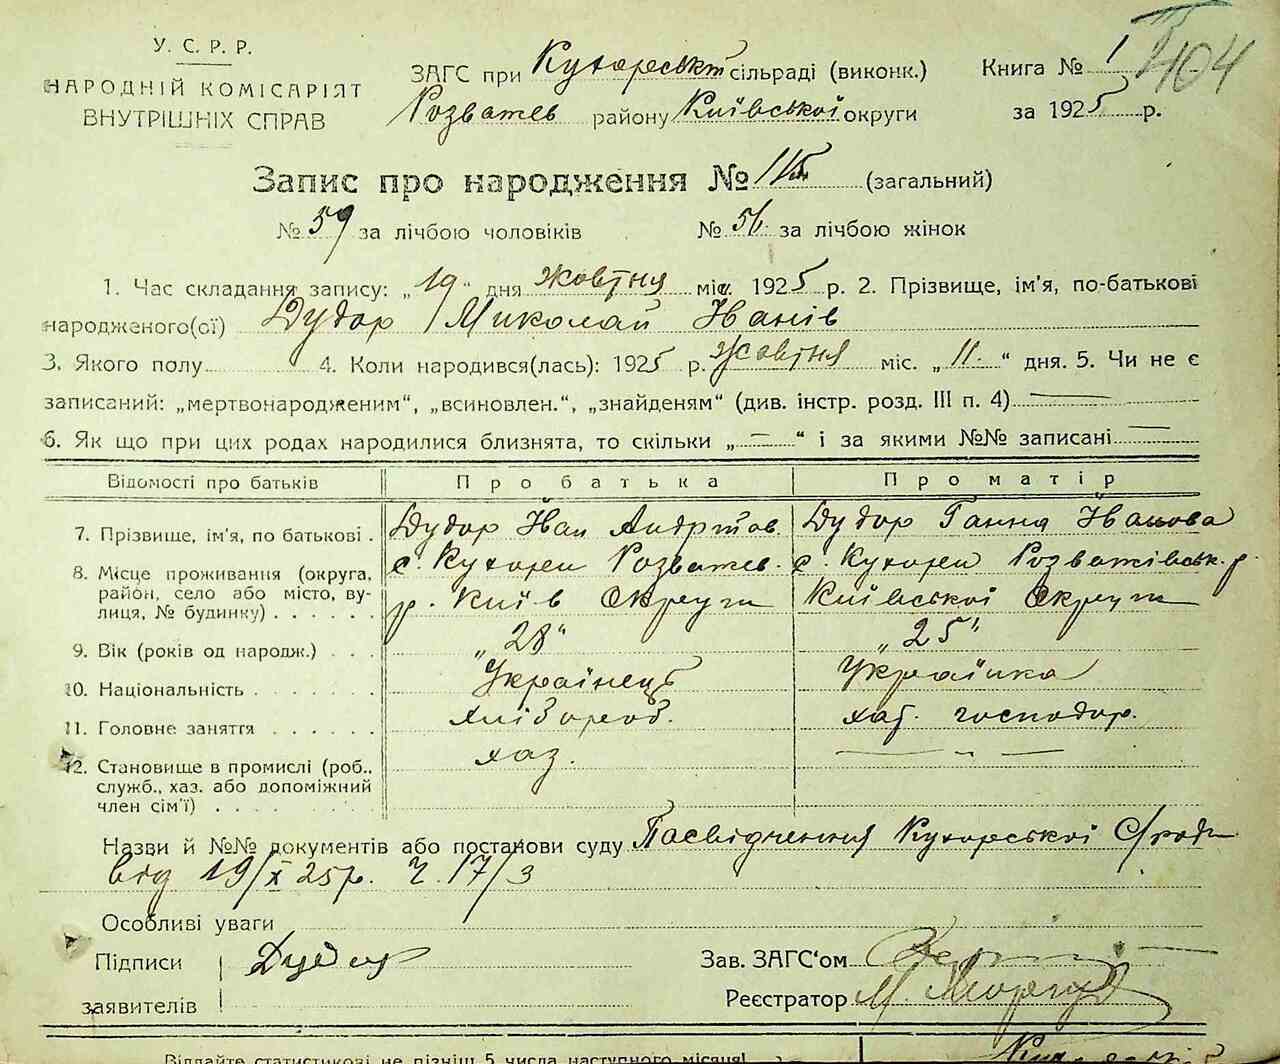 У. С. Р. Р.
НАРОДНІЙ КОМІСАРІЯТ
ВНУТРІШНІХ СПРАВ
ЗАГС при Кухарськ сільраді (виконк.)
Розважев району Київської округи
Книга № 1
404
за 1925 р.
Запис про народження № 115 (загальний)
№ 59 за лічбою чоловіків № 56 за лічбою жінок
1. Час складання запису: „19“ дня жовтня міс. 1925 р. 2. Прізвище, ім'я, по-батькові
народженого(сої) Дудар Миколай Іванів
3. Якого полу 4. Коли народився(лась): 1925 р. жовтня міс. „11“ дня. 5. Чи не є
записаний: „мертвонародженим“, „всиновлен.“, „знайденям“ (див. інстр. розд. III п. 4) —
6. Як що при цих родах народилися близнята, то скільки „—“ і за якими №№ записані —
Відомості про батьків Про батька Про матір
7. Прізвище, ім'я, по батькові . Дудор Іван Дудор Ганна Іванова
8. Місце проживання (округа, с. Кухари Розважев. с. Кухари Розважівськ. р.
район, село або місто, ву- р. Київ Округи Київської Округи
лиця, № будинку) . . . . . .
9. Вік (років од народж.) . . . „28“ „25“
10. Національність . . . . . . . Українець Українка
11. Головне заняття . . . . . . хлібороб. хат. господар.
12. Становище в промислі (роб., хаз. — „ —
служб., хаз. або допоміжний
член сім'ї) . . . . . . . . .
Назви й №№ документів або постанови суду Посвідчення Кухарської С/ради
від 19/X 25 р. Ч. 17/3
Особливі уваги
Підписи Дудар
заявителів
Зав. ЗАГС'ом
Реєстратор М.
Віддайте статистикові не пізніш 5 числа наступного місяця!